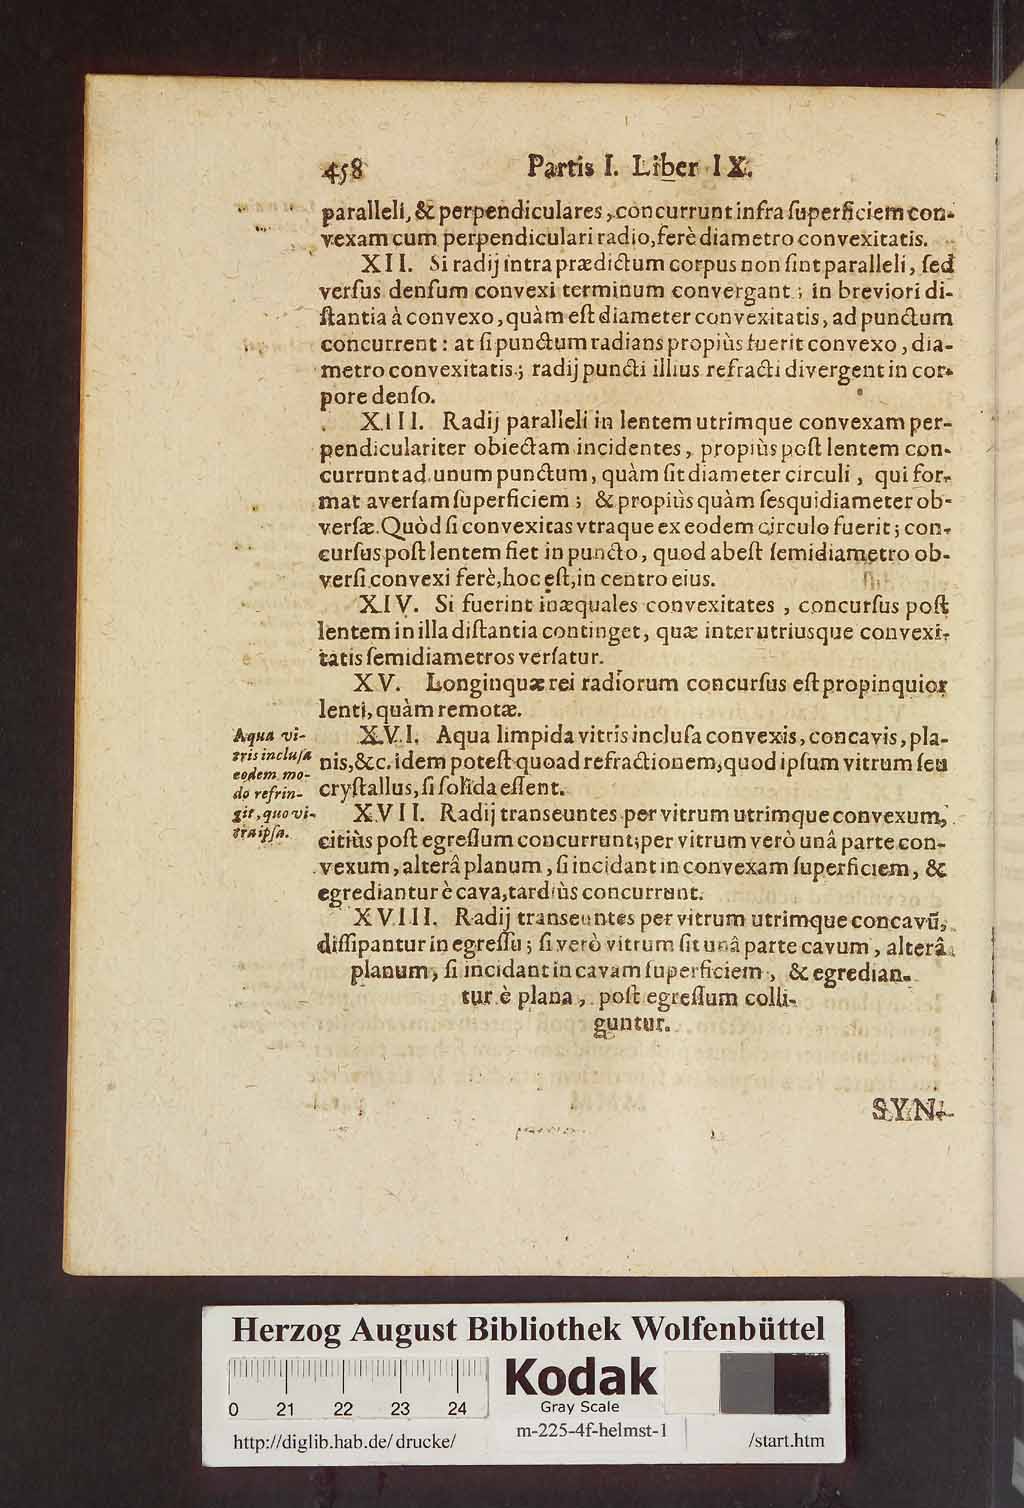 458 Partis I. Liber IX.
paralleli, & perpendiculares, concurrunt infra ſuperficiem con-
vexam cum perpendiculari radio, ferè diametro convexitatis.
XII. Si radij intra prædictum corpus non ſint paralleli, ſed
verſus denſum convexi terminum convergant; in breviori di-
ſtantia à convexo, quàm eſt diameter convexitatis, ad punctum
concurrent: at ſi punctum radians propiùs fuerit convexo, dia-
metro convexitatis; radij puncti illius refracti divergent in cor-
pore denſo.
XIII. Radij paralleli in lentem utrimque convexam per-
pendiculariter obiectam incidentes, propiùs poſt lentem con-
currunt ad unum punctum, quàm ſit diameter circuli, qui for-
mat averſam ſuperficiem; & propiùs quàm ſesquidiameter ob-
verſæ. Quòd ſi convexitas vtraque ex eodem circulo fuerit; con-
curſus poſt lentem fiet in puncto, quod abeſt ſemidiametro ob-
verſi convexi ferè, hoc eſt, in centro eius.
XIV. Si fuerint inæquales convexitates, concurſus poſt
lentem in illa diſtantia continget, quæ inter utriusque convexi-
tatis ſemidiametros verſatur.
XV. Longinquæ rei radiorum concurſus eſt propinquior
lenti, quàm remotæ.
Aqua vi-
tris incluſa
eodem mo-
do refrin-
git, quo vi-
tra ipſa.
XVI. Aqua limpida vitris incluſa convexis, concavis, pla-
nis, &c. idem poteſt quoad refractionem, quod ipſum vitrum ſeu
cryſtallus, ſi ſolida eſſent.
XVII. Radij transeuntes per vitrum utrimque convexum,
citiùs poſt egreſſum concurrunt; per vitrum verò unâ parte con-
vexum, alterâ planum, ſi incidant in convexam ſuperficiem, &
egrediantur è cava, tardiùs concurrunt.
XVIII. Radij transeuntes per vitrum utrimque concavũ,
diſſipantur in egreſſu; ſi verò vitrum ſit unâ parte cavum, alterâ
planum, ſi incidant in cavam ſuperficiem, & egredian-
tur è plana, poſt egreſſum colli-
guntur.
SYN-
Herzog August Bibliothek Wolfenbüttel
0 21 22 23 24
Kodak
Gray Scale
http://diglib.hab.de/drucke/ m-225-4f-helmst-1 /start.htm